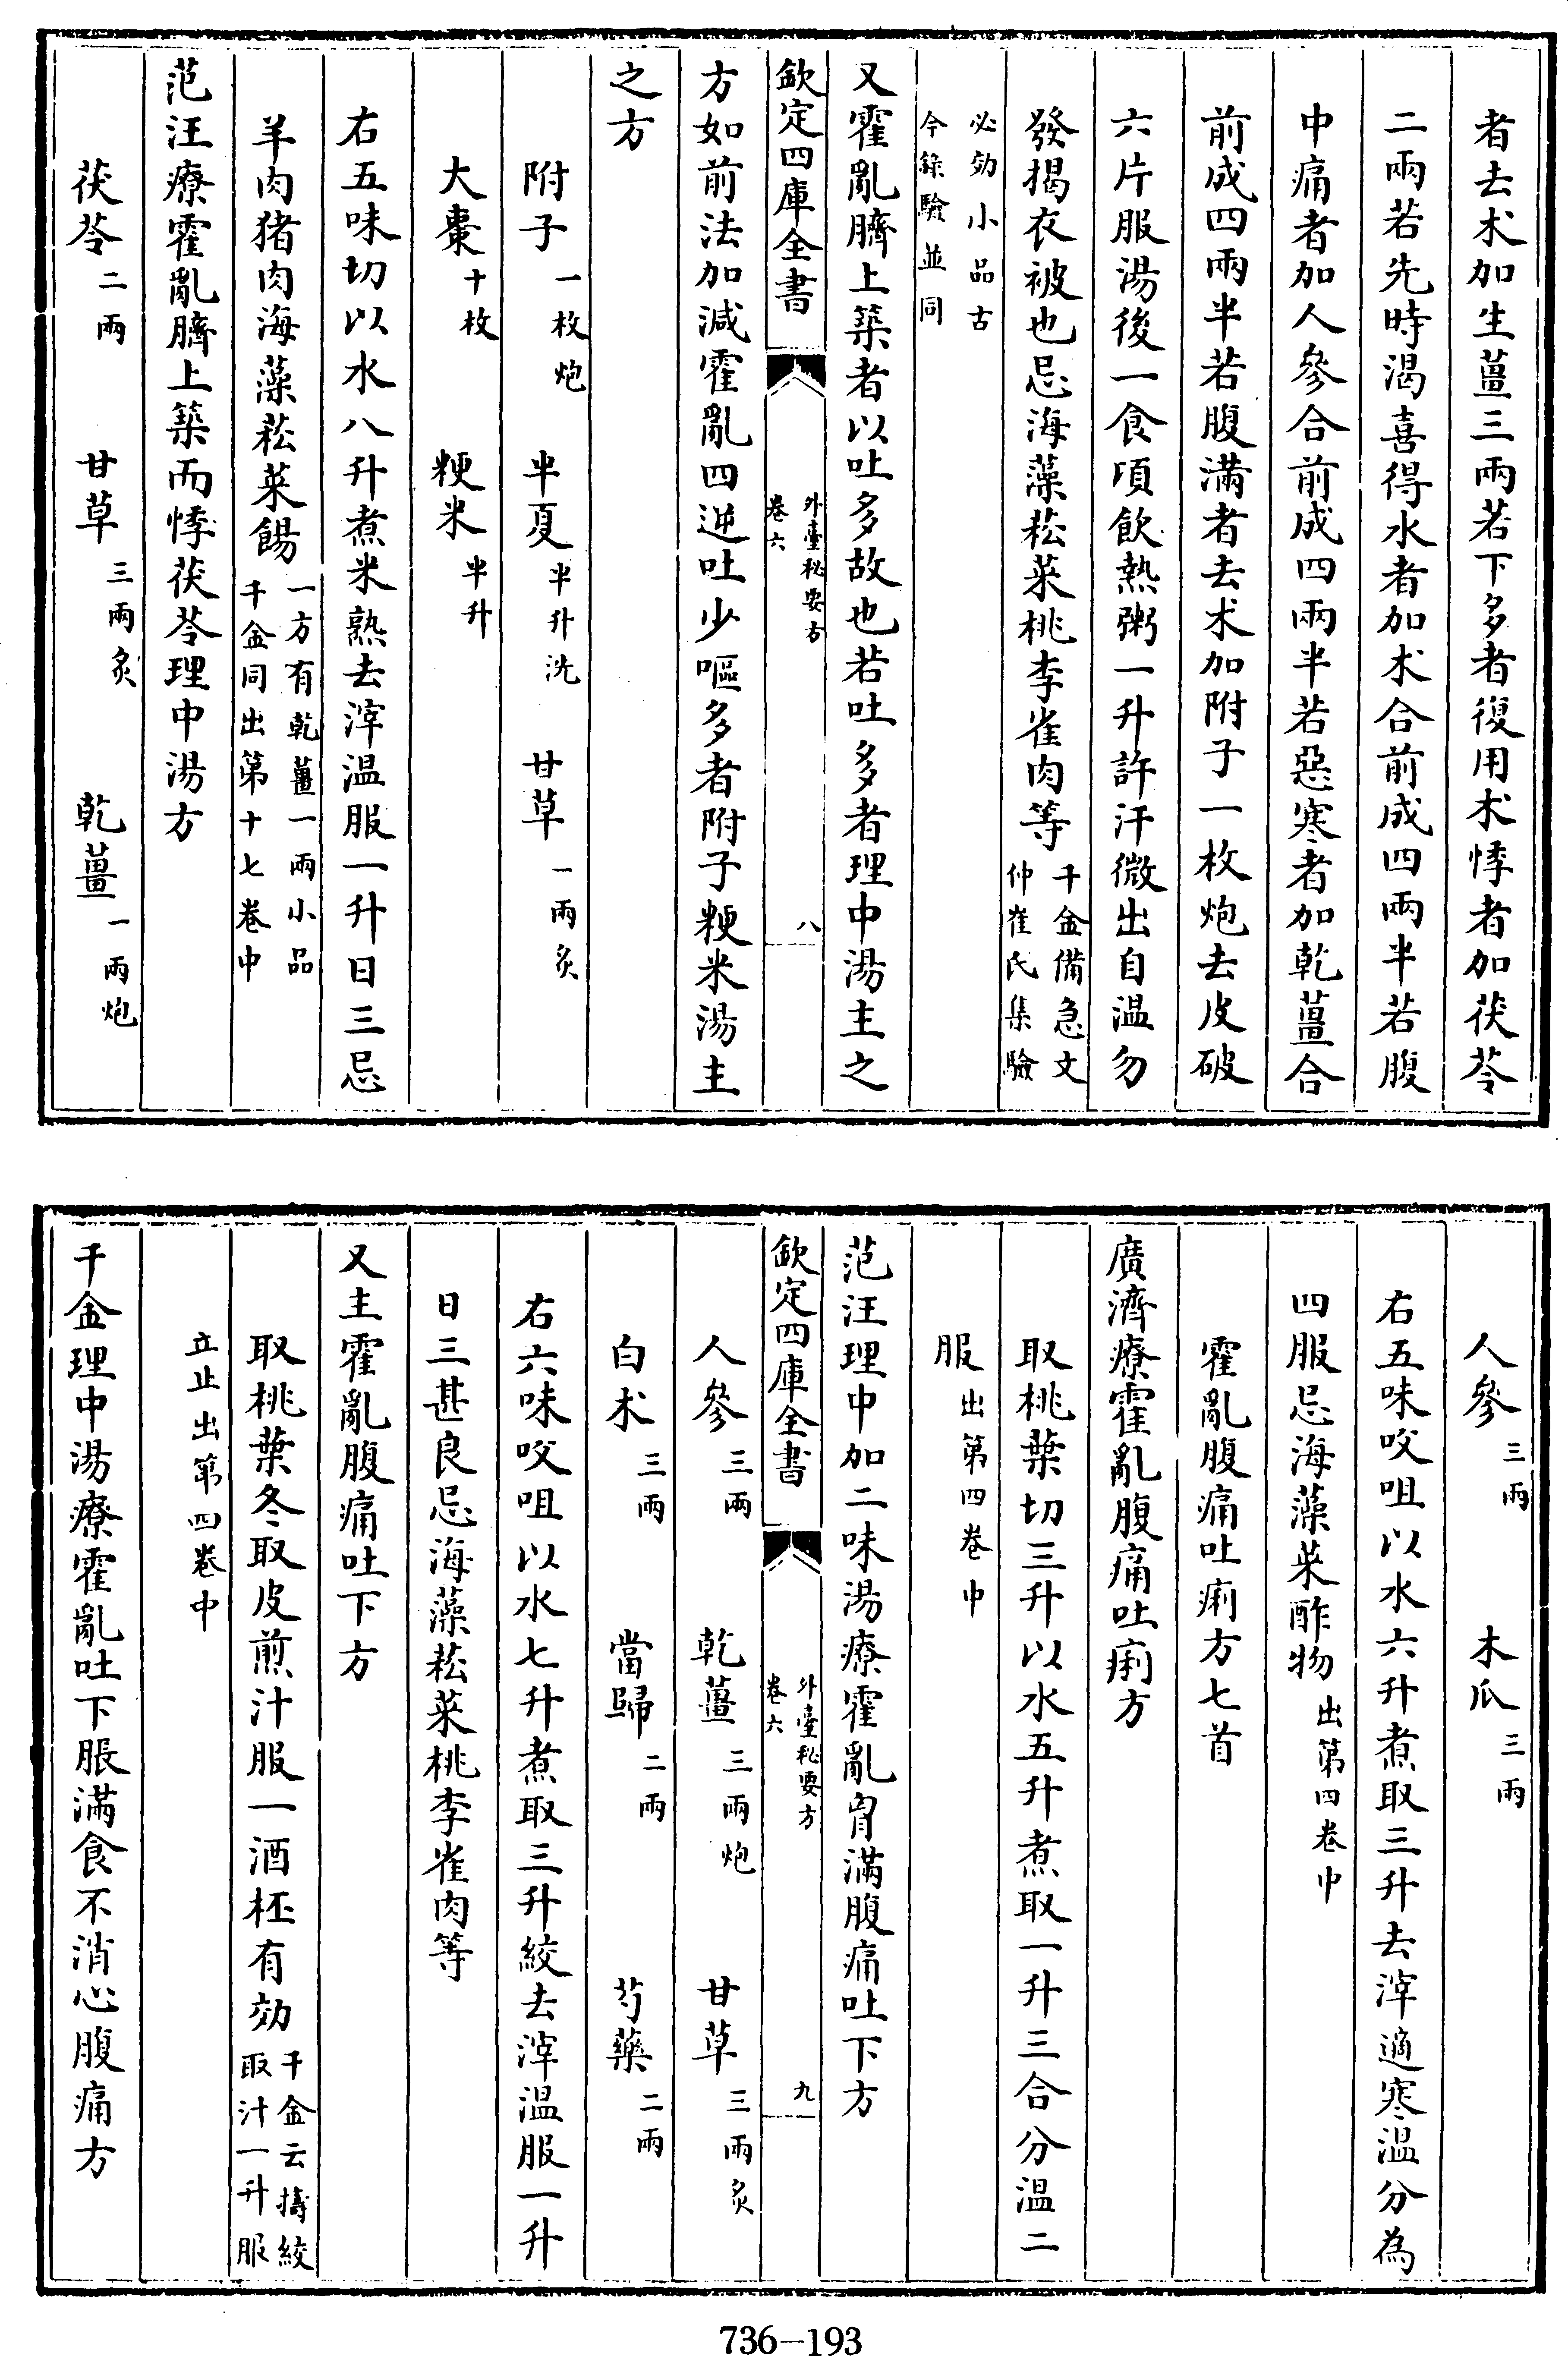 者去术加生薑三兩若下多者復用术悸者加茯苓
二兩若先時渴喜得水者加术合前成四兩半若腹
中痛者加人參合前成四兩半若惡寒者加乾薑合
前成四兩半若腹滿者去术加附子一枚炮去皮破
六片服湯後一食頃飲熱粥一升許汗微出自温勿
發揭衣被也忌海藻菘菜桃李雀肉等千金備急文仲崔氏集驗
必効小品古今錄驗並同
又霍亂臍上築者以吐多故也若吐多者理中湯主之
欽定四庫全書 外臺秘要方卷六 八
方如前法加減霍亂四逆吐少嘔多者附子粳米湯主
之方
附子一枚炮 半夏半升洗 甘草一兩炙
大棗十枚 粳米半升
右五味切以水八升煮米熟去滓温服一升日三忌
羊肉猪肉海藻菘菜餳一方有乾薑一兩小品千金同出第十七卷中
范汪療霍亂臍上築而悸茯苓理中湯方
茯苓二兩 甘草三兩炙 乾薑一兩炮
人參三兩 木瓜三兩
右五味㕮咀以水六升煮取三升去滓適寒温分為
四服忌海藻菜酢物出第四卷中
霍亂腹痛吐痢方七首
廣濟療霍亂腹痛吐痢方
取桃葉切三升以水五升煮取一升三合分温二
服出第四卷中
范汪理中加二味湯療霍亂胷滿腹痛吐下方
欽定四庫全書 外臺秘要方卷六 九
人參三兩 乾薑三兩炮 甘草三兩炙
白术三兩 當歸二兩 芍藥二兩
右六味㕮咀以水七升煮取三升絞去滓温服一升
日三甚良忌海藻菘菜桃李雀肉等
又主霍亂腹痛吐下方
取桃葉冬取皮煎汁服一酒柸有効千金云擣絞取汁一升服
立止出第四卷中
千金理中湯療霍亂吐下脹滿食不消心腹痛方
736-193